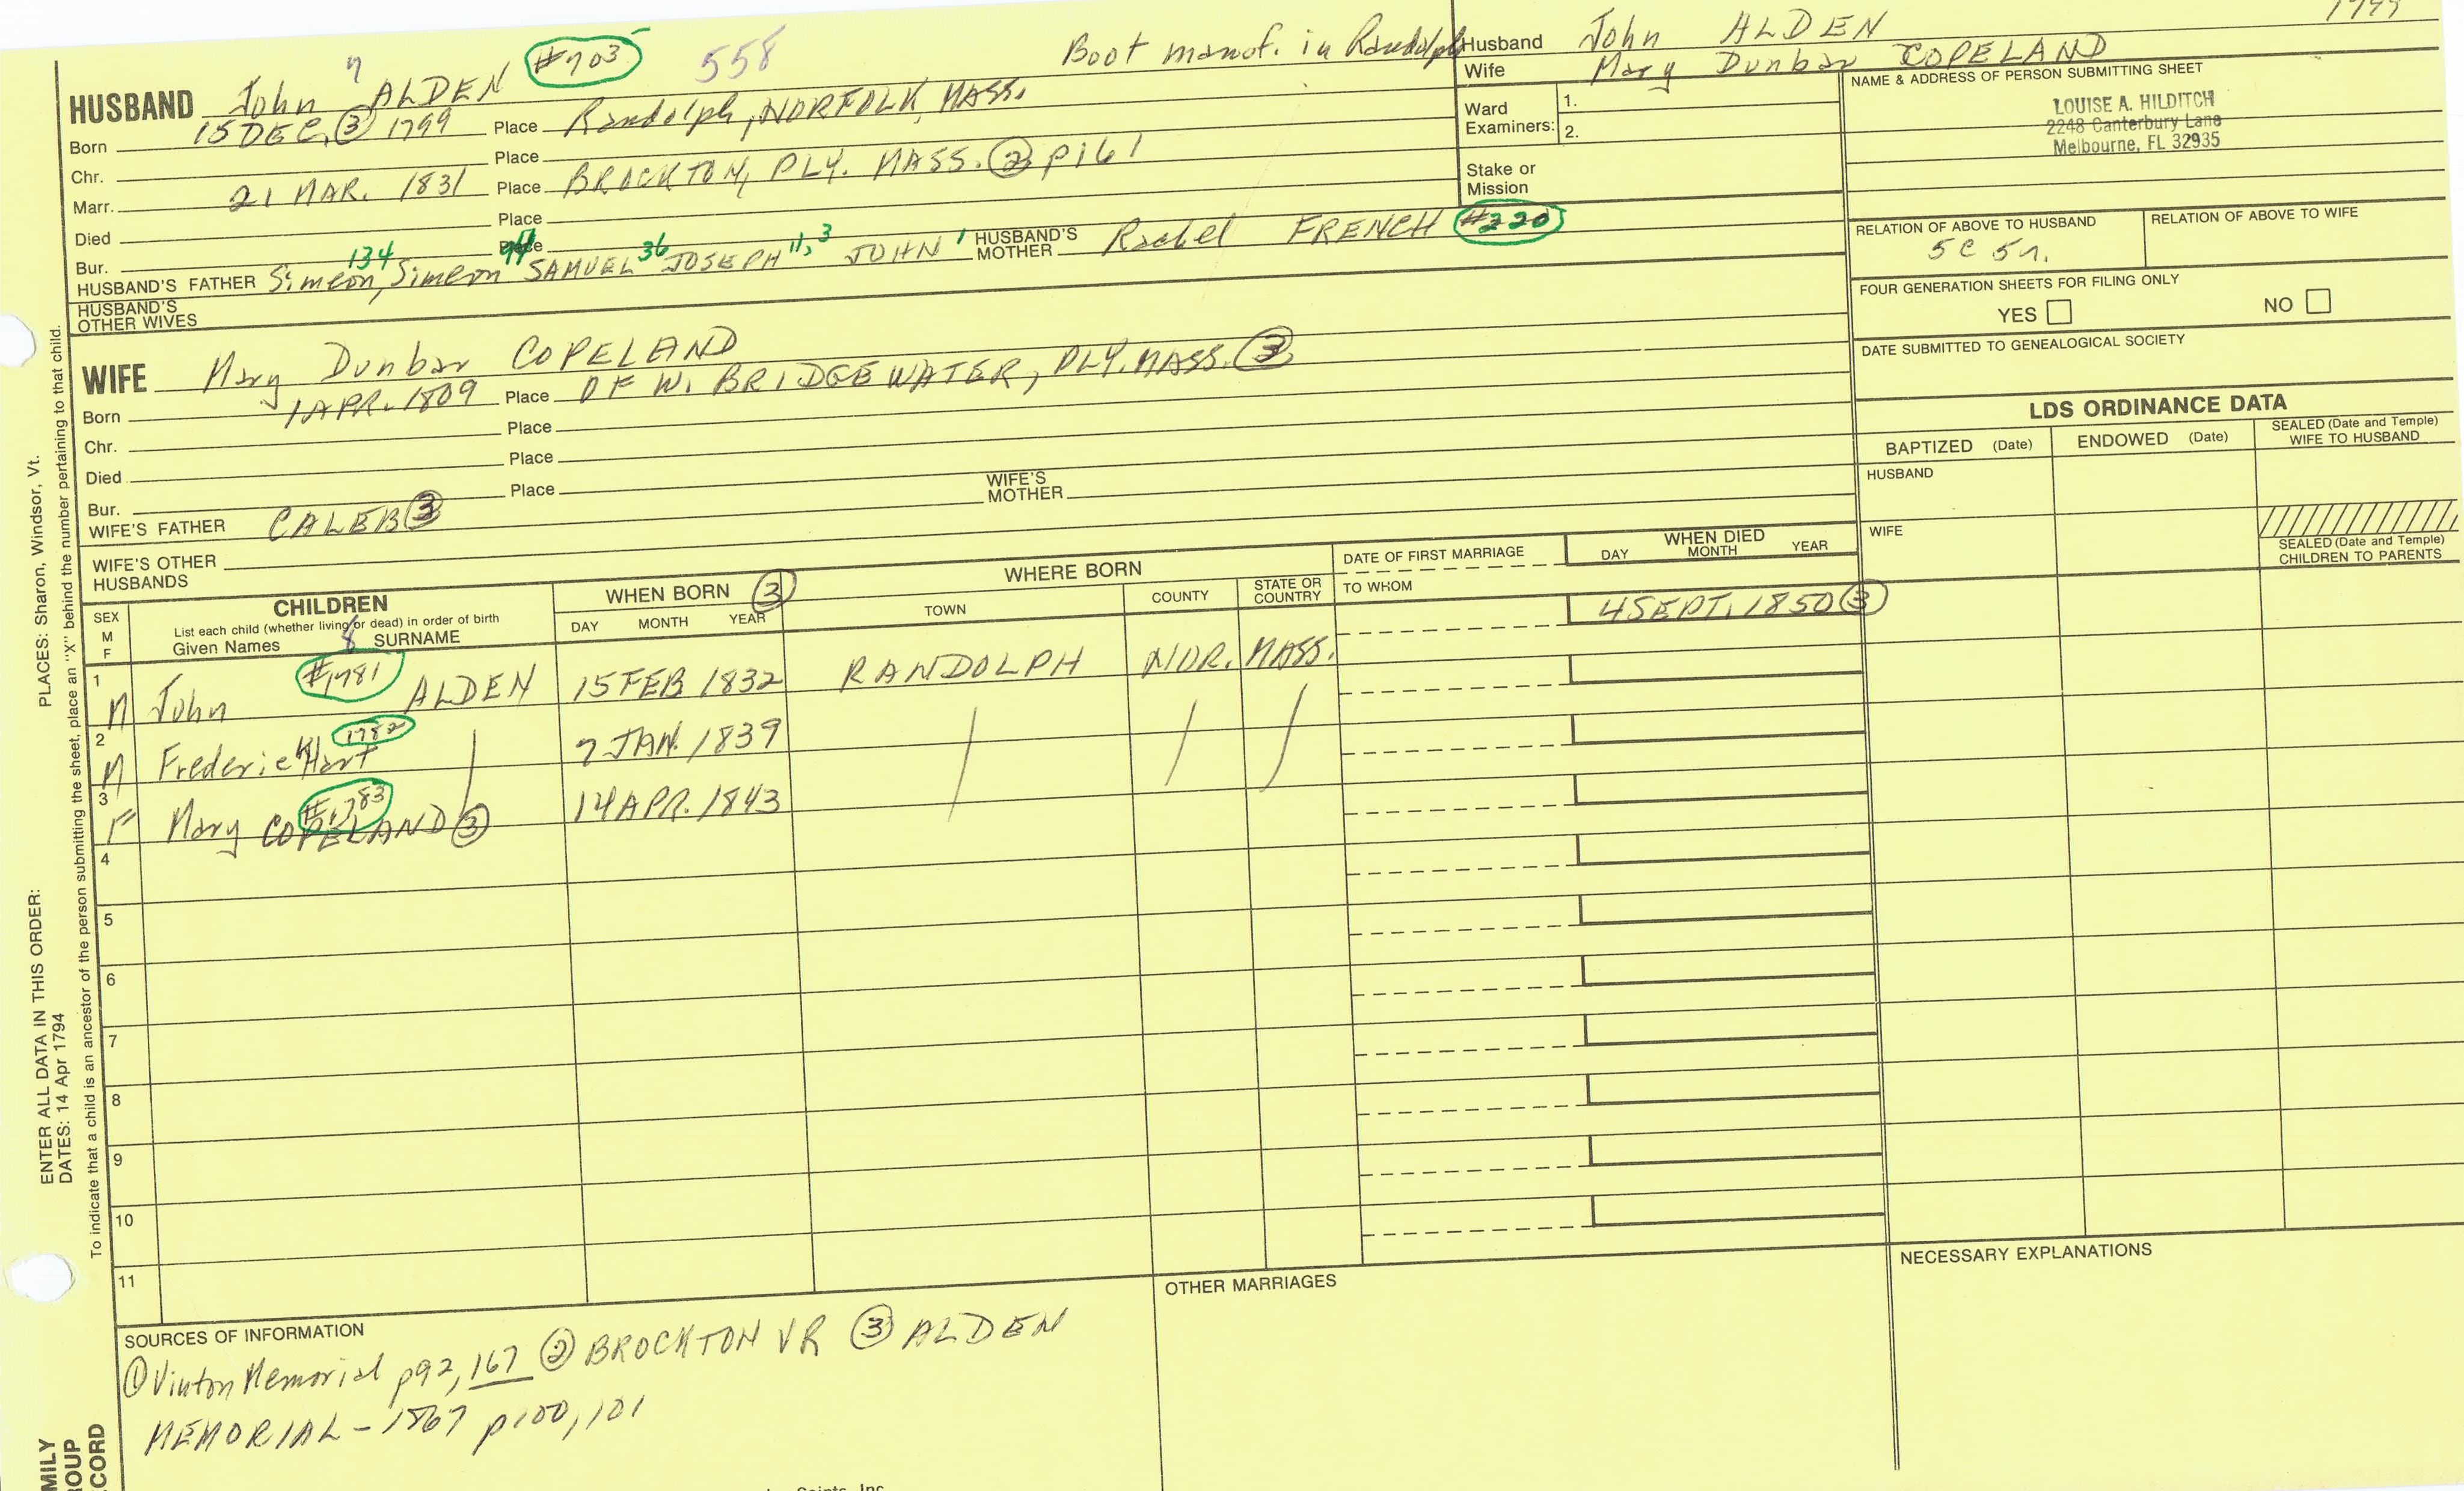 1799
Boot manof. in Randolph
Husband John ALDEN
Wife Mary Dunbar COPELAND
HUSBAND John 7 ALDEN #703 558
Born 15 DEC. ③ 1799 Place Randolph, NORFOLK, MASS.
Chr. Place
Marr. 21 MAR. 1831 Place BROCKTON, PLY. MASS. ② p161
Died Place
Bur. Place
HUSBAND'S FATHER Simeon, 134 Simeon SAMUEL 36 JOSEPH 11, 3 JOHN 1 HUSBAND'S MOTHER Rachel FRENCH #220
HUSBAND'S OTHER WIVES
Ward Examiners: 1. 2.
Stake or Mission
NAME & ADDRESS OF PERSON SUBMITTING SHEET
LOUISE A. HILDITCH
2248 Canterbury Lane
Melbourne, FL 32935
RELATION OF ABOVE TO HUSBAND RELATION OF ABOVE TO WIFE
5C 5r.
FOUR GENERATION SHEETS FOR FILING ONLY
YES NO
DATE SUBMITTED TO GENEALOGICAL SOCIETY
WIFE Mary Dunbar COPELAND
Born 1 APR. 1809 Place OF W. BRIDGEWATER, PLY. MASS. ③
Chr. Place
Died Place
Bur. Place
WIFE'S FATHER CALEB ③ WIFE'S MOTHER
WIFE'S OTHER HUSBANDS
LDS ORDINANCE DATA
BAPTIZED (Date) ENDOWED (Date) SEALED (Date and Temple) WIFE TO HUSBAND
HUSBAND
WIFE
SEALED (Date and Temple) CHILDREN TO PARENTS
SEX M F
CHILDREN
List each child (whether living or dead) in order of birth
Given Names 8 SURNAME
WHEN BORN ③
DAY MONTH YEAR
WHERE BORN
TOWN COUNTY STATE OR COUNTRY
DATE OF FIRST MARRIAGE
TO WHOM
WHEN DIED
DAY MONTH YEAR
1 M John #1781 ALDEN 15 FEB 1832 RANDOLPH NOR. MASS. 4 SEPT. 1850 ③
2 M Frederick Hart 1782 7 JAN. 1839
3 F Mary COPELAND ③ #1783 14 APR. 1843
4
5
6
7
8
9
10
11
SOURCES OF INFORMATION
① Vinton Memorial p92, 167 ② BROCKTON VR ③ ALDEN
MEMORIAL - 1867 p100, 101
OTHER MARRIAGES
NECESSARY EXPLANATIONS
ENTER ALL DATA IN THIS ORDER: PLACES: Sharon, Windsor, Vt.
DATES: 14 Apr 1794
To indicate that a child is an ancestor of the person submitting the sheet, place an "X" behind the number pertaining to that child.